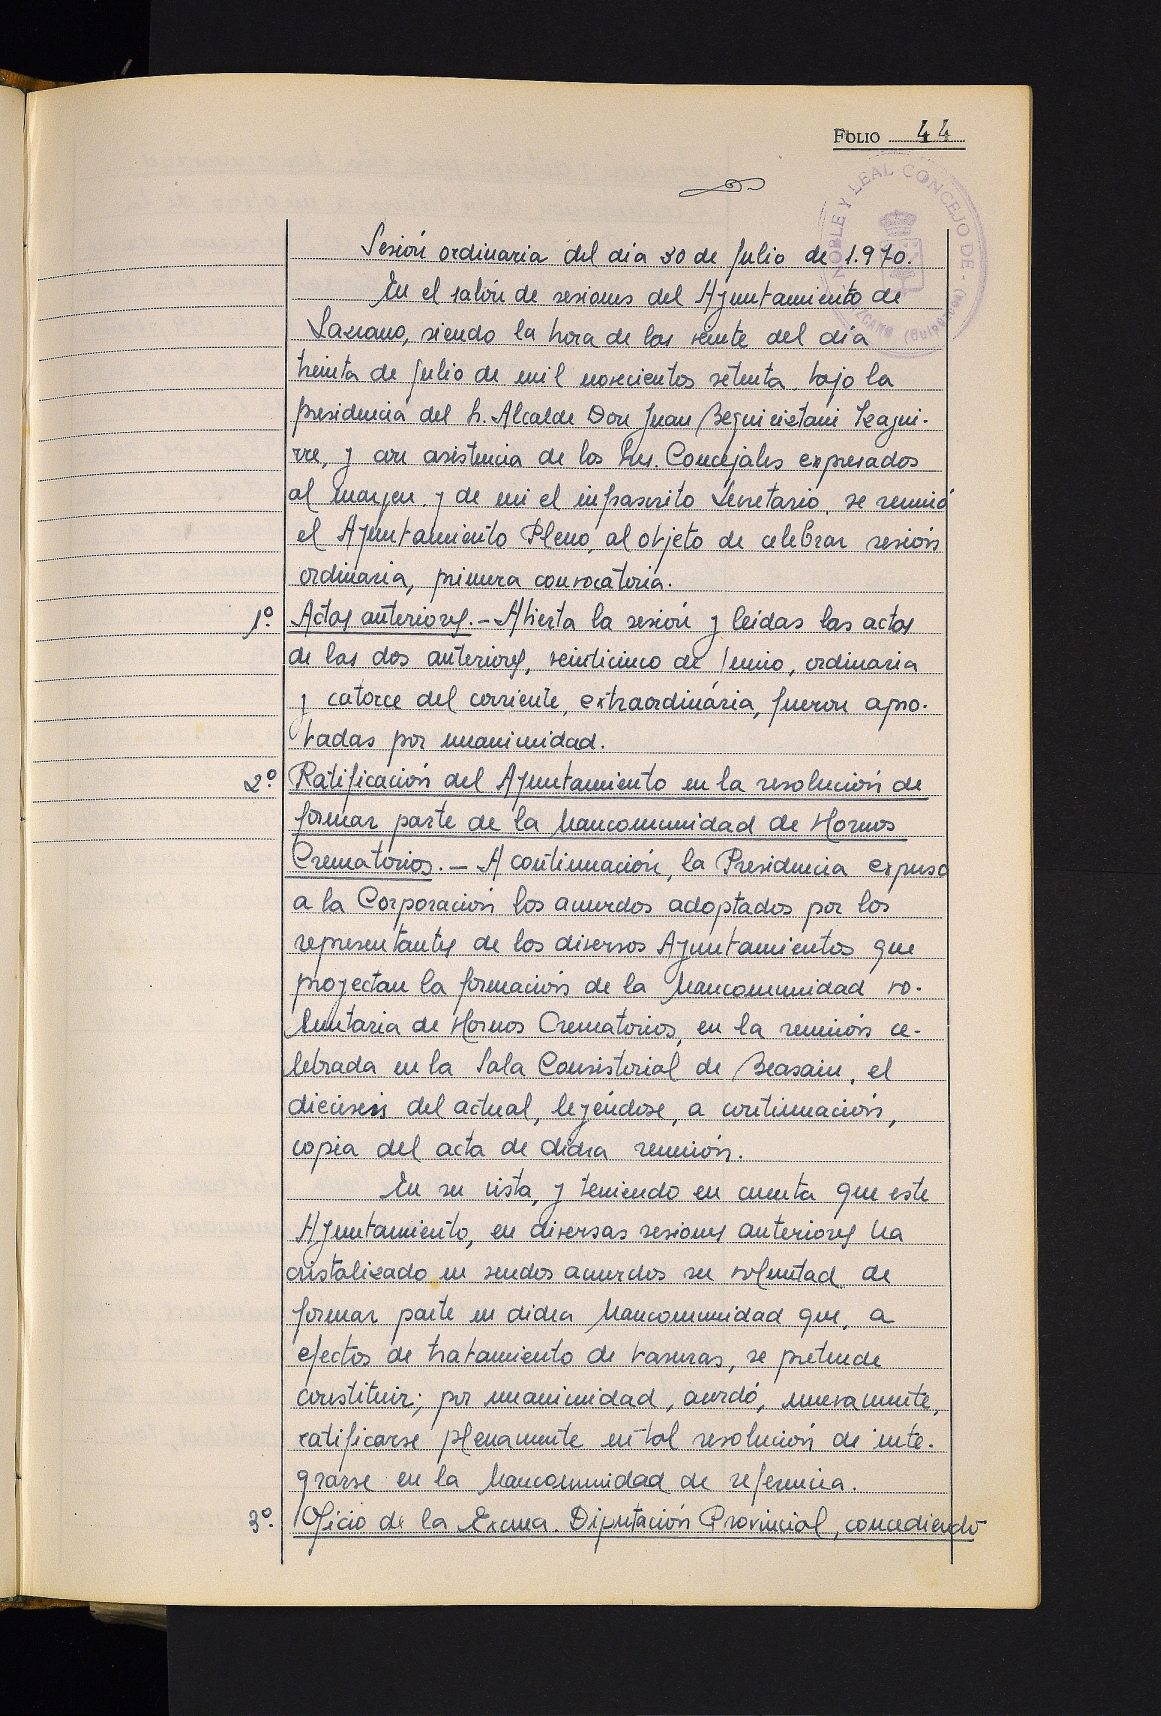 FOLIO 44
NOBLE Y LEAL CONCEJO DE
Sesión ordinaria del día 30 de Julio de 1.970.
En el salón de sesiones del Ayuntamiento de
Lazcano, siendo la hora de las veinte del día
treinta de Julio de mil novecientos setenta, bajo la
presidencia del Sr. Alcalde Don Juan Beguiristain Izagui-
rre, y con asistencia de los Sres. Concejales expresados
al margen y de mi el infrascrito Secretario, se reunió
el Ayuntamiento Pleno, al objeto de celebrar sesión
ordinaria, primera convocatoria.
1º. Actas anteriores.- Abierta la sesión y leídas las actas
de las dos anteriores, veinticinco de Junio, ordinaria
y catorce del corriente, extraordinaria, fueron apro-
badas por unanimidad.
2º. Ratificación del Ayuntamiento en la resolución de
formar parte de la Mancomunidad de Hornos
Crematorios.- A continuación, la Presidencia expuso
a la Corporación los acuerdos adoptados por los
representantes de los diversos Ayuntamientos que
proyectan la formación de la Mancomunidad vo-
luntaria de Hornos Crematorios, en la reunión ce-
lebrada en la Sala Consistorial de Beasain, el
dieciseis del actual, leyéndose, a continuación,
copia del acta de dicha reunión.
En su vista, y teniendo en cuenta que este
Ayuntamiento, en diversas sesiones anteriores ha
cristalizado en sendos acuerdos su voluntad de
formar parte en dicha Mancomunidad que, a
efectos de tratamiento de basuras, se pretende
constituir; por unanimidad, acordó, nuevamente,
ratificarse plenamente en tal resolución de inte-
grarse en la Mancomunidad de referencia.
3º. Oficio de la Excma. Diputación Provincial, concediendo